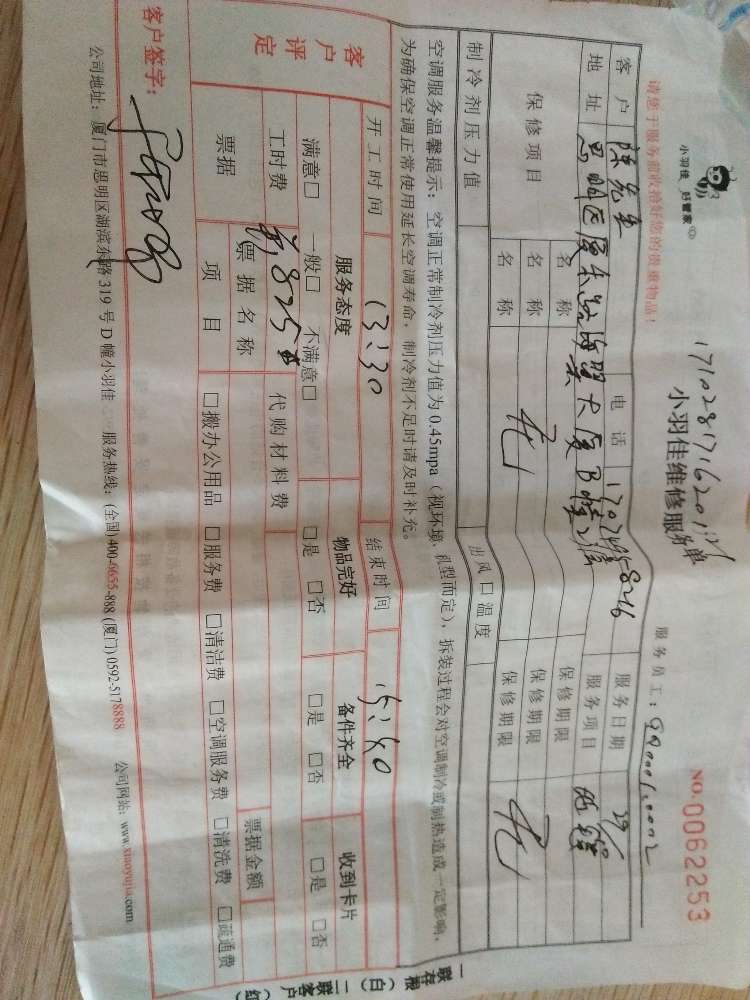 小羽佳 好管家
1710281716201
小羽佳维修服务单
NO.0062253
请您于服务前收拾好您的贵重物品！
服务员工：
客户 陈先生 电话 服务日期 29/10
地址 思明区厦禾路海翼大厦B幢 服务项目
保修项目 名称 保修期限
名称 无 保修期限 无
名称 保修期限
制冷剂压力值 出风口温度
空调服务温馨提示：空调正常制冷剂压力值为0.45mpa（视环境、机型而定），拆装过程会对空调制冷或制热造成一定影响，
为确保空调正常使用延长空调寿命，制冷剂不足时请及时补充。
开工时间 13:30 结束时间 15:40
客户评定 服务态度 物品完好 备件齐全 收到卡片
满意□ 一般□ 不满意□ □是 □否 □是 □否 □是 □否
工时费 825 代购材料费
票据 票据名称 票据金额
项目 □搬办公用品 □服务费 □清洁费 □空调服务费 □清洗费 □疏通费
客户签字：
公司地址：厦门市思明区湖滨东路319号D幢小羽佳 服务热线：(全国)400-6655-888 (厦门)0592-5178888 公司网站：www.xiaoyujia.com
一联存根（白）二联客户（红